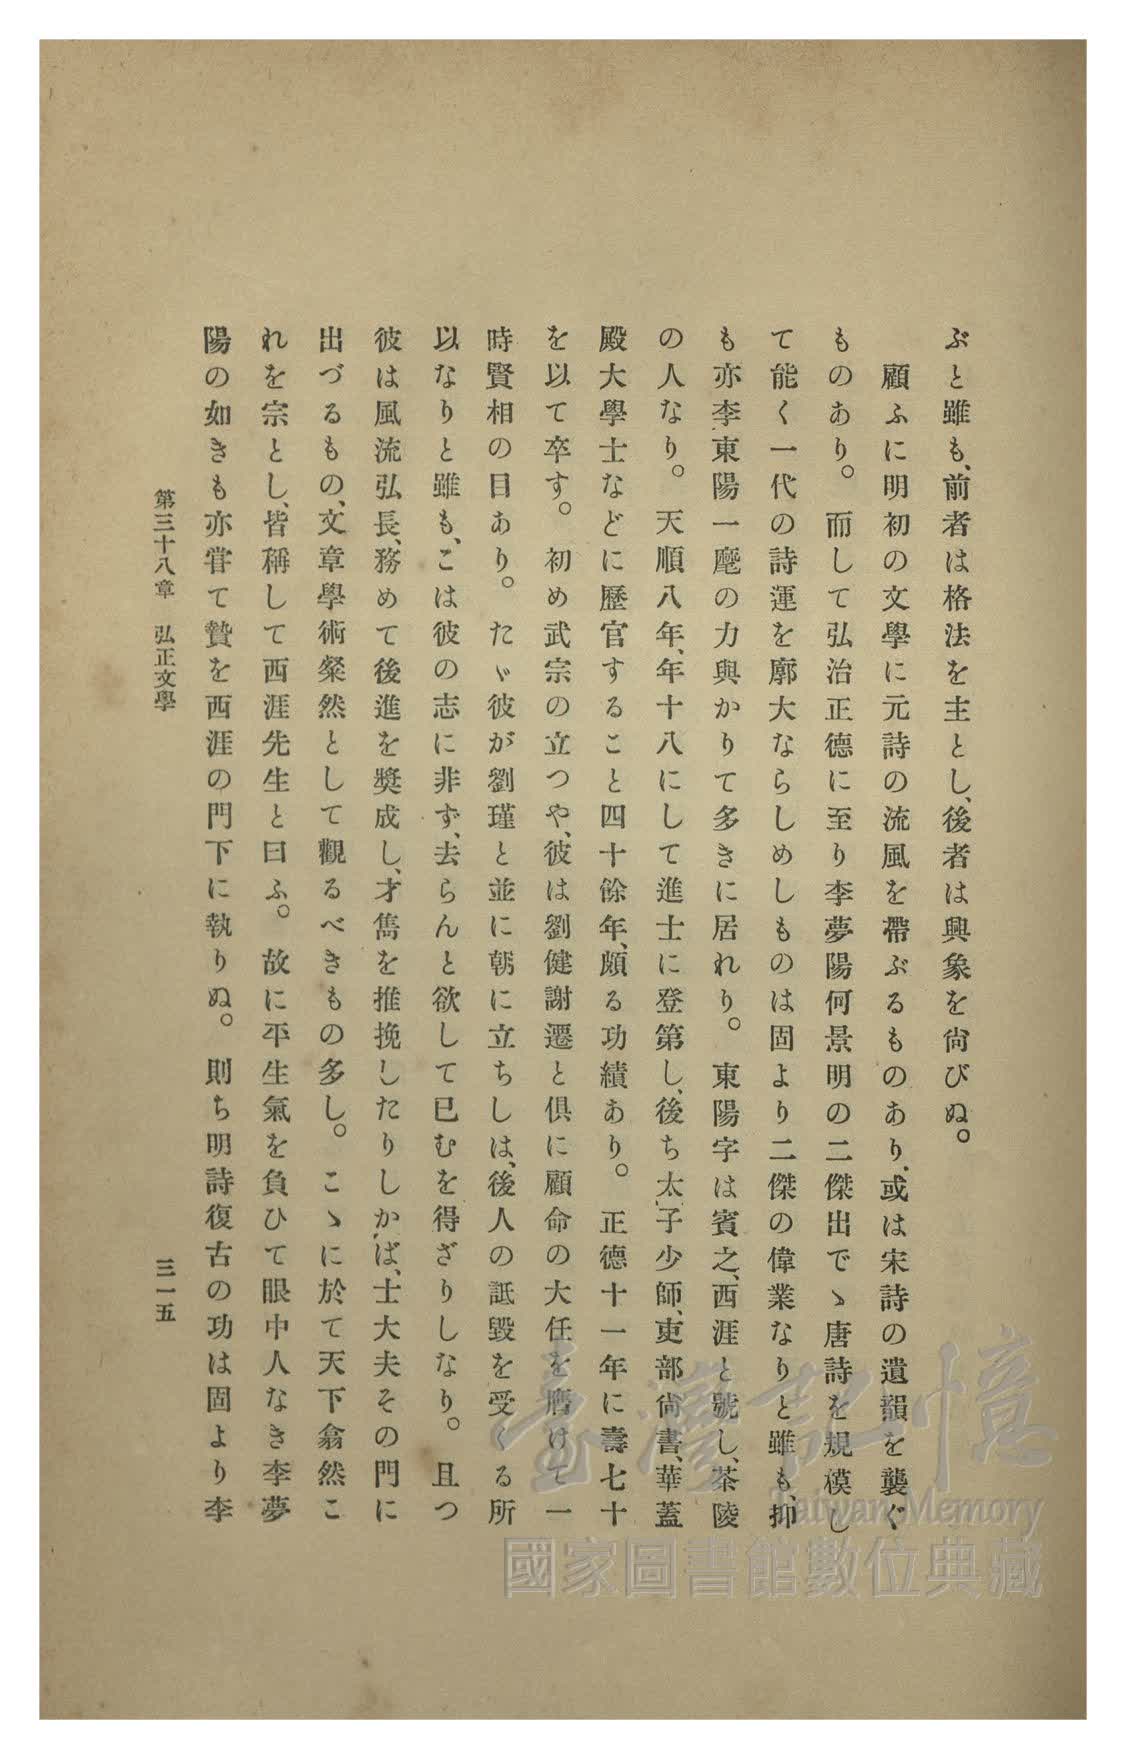 ぶと雖も、前者は格法を主とし、後者は興象を尙びぬ。
顧ふに明初の文學に元詩の流風を帶ぶるものあり、或は宋詩の遺韻を襲ぐ
ものあり。而して弘治正德に至り李夢陽何景明の二傑出でゝ唐詩を規模し
て能く一代の詩運を廓大ならしめしものは固より二傑の偉業なりと雖も、抑
も亦李東陽一麾の力與かりて多きに居れり。東陽字は賓之、西涯と號し、茶陵
の人なり。天順八年、年十八にして進士に登第し、後ち太子少師、吏部尙書、華蓋
殿大學士などに歷官すること四十餘年、頗る功績あり。正德十一年に壽七十
を以て卒す。初め武宗の立つや、彼は劉健謝遷と俱に顧命の大任を膺けて一
時賢相の目あり。たゞ彼が劉瑾と並に朝に立ちしは、後人の詆毀を受くる所
以なりと雖も、こは彼の志に非ず、去らんと欲して已むを得ざりしなり。且つ
彼は風流弘長、務めて後進を奬成し、才雋を推挽したりしかば、士大夫その門に
出づるもの、文章學術粲然として觀るべきもの多し。こゝに於て天下翕然こ
れを宗とし、皆稱して西涯先生と曰ふ。故に平生氣を負ひて眼中人なき李夢
陽の如きも亦甞て贄を西涯の門下に執りぬ。則ち明詩復古の功は固より李
第三十八章　弘正文學
三一五
臺灣記憶
Taiwan Memory
國家圖書館數位典藏